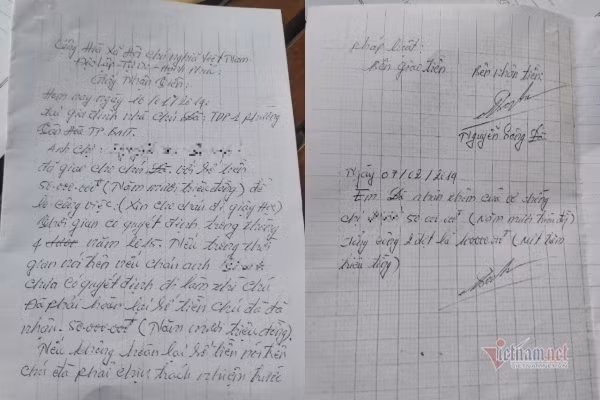 Cộng Hòa Xã Hội Chủ nghĩa Việt Nam
Độc lập - Tự do - Hạnh Phúc
Giấy Nhận Tiền:
Hôm nay ngày
Tại gia đình nhà chú TDP 4 phường
TP.
Anh chị:
đã giao cho chú số tiền
50.000.000đ (Năm mươi triệu đồng) để
lo công việc. (Xin cho cháu đi dạy Học)
Thời gian có quyết định trong tháng
4 năm Nếu trong thời
gian nói trên nếu cháu anh
chưa có quyết định đi làm thì chú
phải hoàn lại số tiền chú đã
nhận. 50.000.000đ (Năm mươi triệu đồng).
Nếu không hoàn lại số tiền nói trên
chú phải chịu trách nhiệm trước
pháp luật:
Bên giao tiền Bên nhận tiền
Nguyễn Hồng
Ngày 07/02/2014
Em nhận thêm của vợ chồng
chị 50.000.000đ (Năm mươi triệu đ)
Tổng cộng 2 đợt là 100.000.000đ (Một trăm
triệu đồng)
Vietnamnet